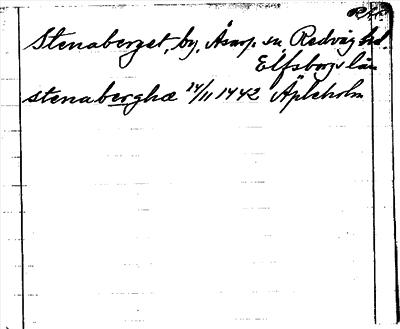 Stenaberget, by, Åsarp sn Redväg hd.
Elfsborgs län
stenaberghæ 14/11 1442 Äpleholm